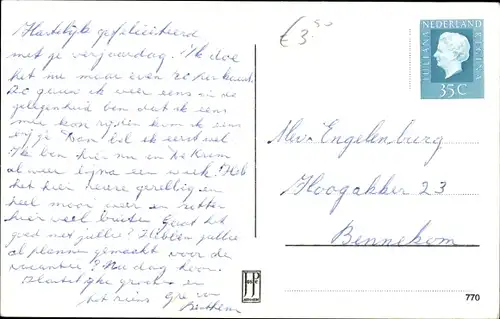 Hartelijk gefeliciteerd
met je verjaardag. Ik doe
het nu maar even
ik weer eens in de
gelegenheid ben dat ik eens
mee kon rijden kom ik eens
Dan bel ik eerst wel
Ik ben hier nu en De Krim
al weer bijna een week. Heb
het hier heere gezellig en
heel mooi weer en zitten
hier veel buiten Gaat het
goed met jullie? Hebben jullie
al plannen gemaakt voor de
vacantie? Nu dag hoor.
Hartelijke groeten en
tot ziens
€3,50
NEDERLAND
JULIANA REGINA
35C
Mevr Engelenburg
Hoogakker 23
Bennekom
JP
770